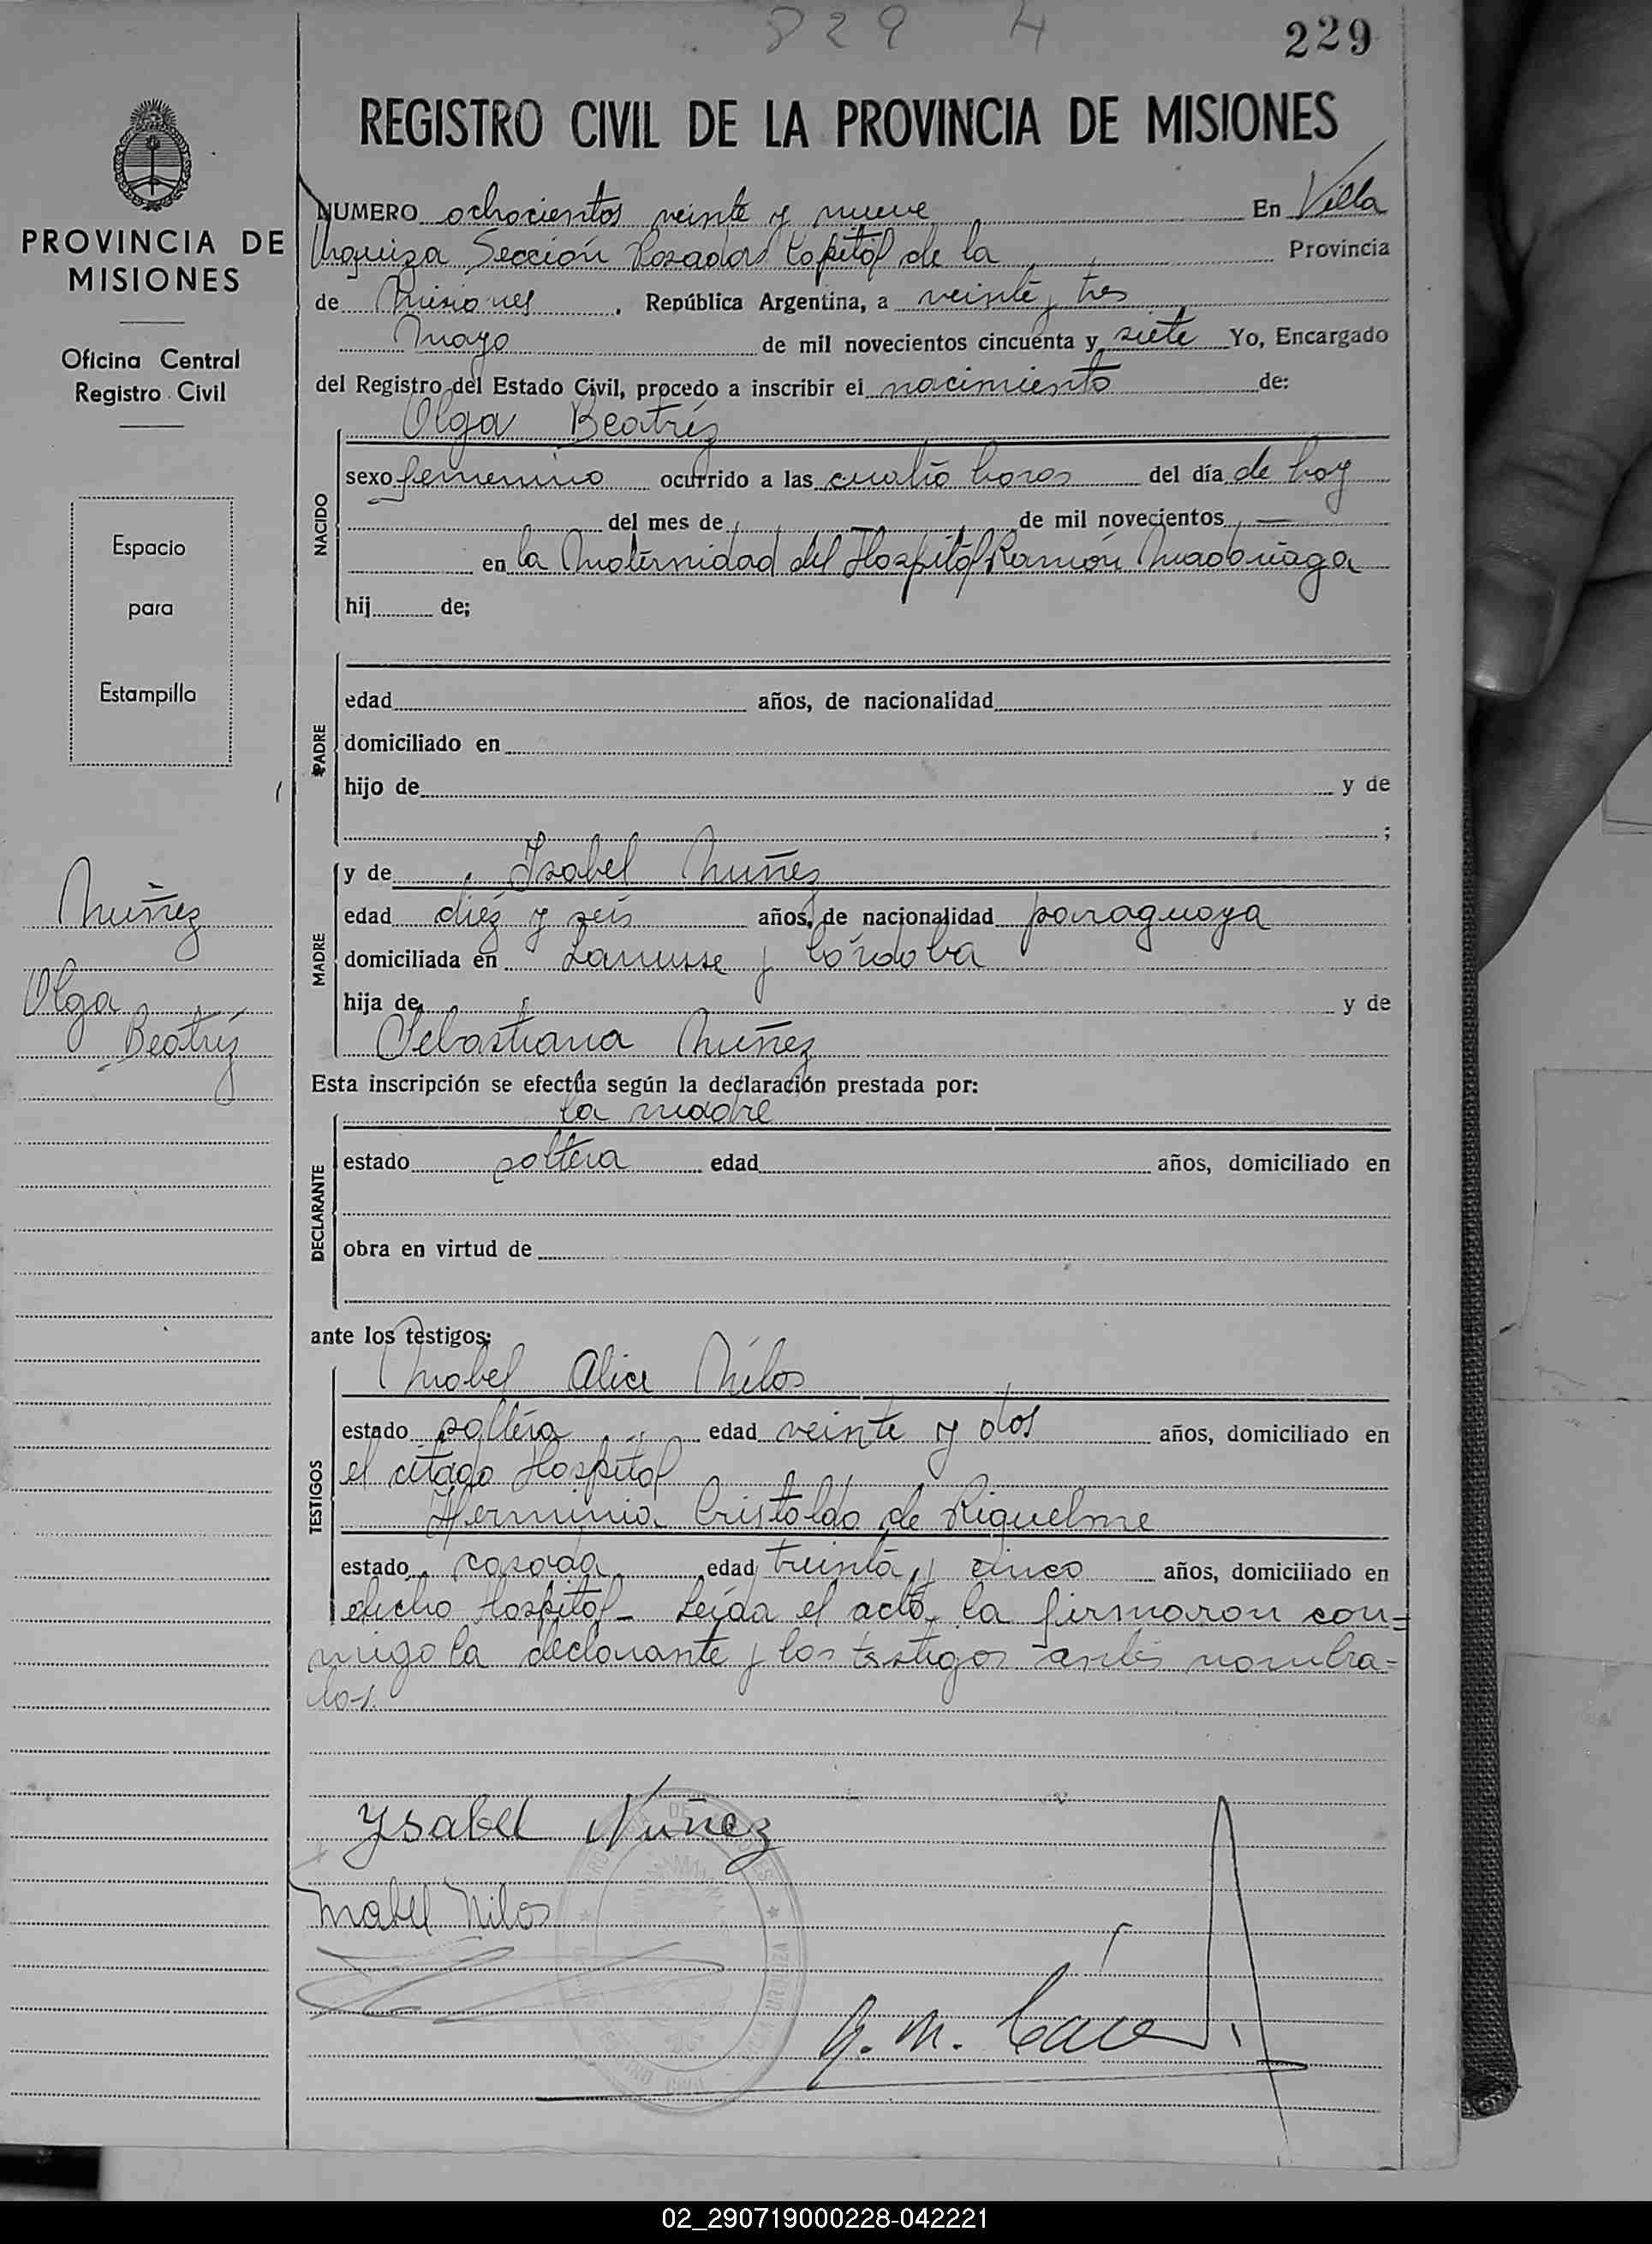 829 4
229
REGISTRO CIVIL DE LA PROVINCIA DE MISIONES
PROVINCIA DE
MISIONES
Oficina Central
Registro Civil
Espacio
para
Estampilla
Nuñez
Olga
Beatríz
NUMERO ochocientos veinte y nueve En Villa
Urquiza Sección Posadas Capital de la Provincia
de Misiones, República Argentina, a veinte y tres
Mayo de mil novecientos cincuenta y siete Yo, Encargado
del Registro del Estado Civil, procedo a inscribir el nacimiento de:
NACIDO
Olga Beatríz
sexo femenino ocurrido a las cuatro horas del día de hoy
del mes de — de mil novecientos —
en la Maternidad del Hospital Ramón Madariaga
hij de;
PADRE
edad años, de nacionalidad
domiciliado en
hijo de y de
;
MADRE
y de Isabel Nuñez
edad diez y seis años, de nacionalidad paraguaya
domiciliada en Lanusse y Córdoba
hija de y de
Sebastiana Nuñez
Esta inscripción se efectúa según la declaración prestada por:
DECLARANTE
la madre
estado soltera edad años, domiciliado en
obra en virtud de
ante los testigos:
TESTIGOS
Mabel Alice Nilos
estado soltera edad veinte y dos años, domiciliado en
el citado Hospital
Herminia Cristaldo de Riquelme
estado casada edad treinta y cinco años, domiciliado en
dicho Hospital- Leída el acta, la firmaron con=
migo la declarante y los testigos antes nombra=
dos.
Ysabel Nuñez
Mabel Nilos
REGISTRO CIVIL VILLA URQUIZA
02_290719000228-042221